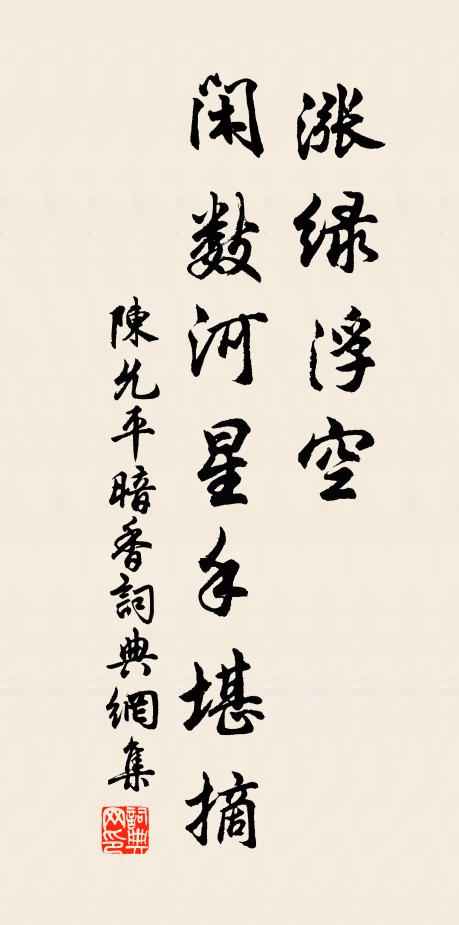 漲綠浮空
閑數河星手堪摘
陳允平暗香詞典網集
詞典網印